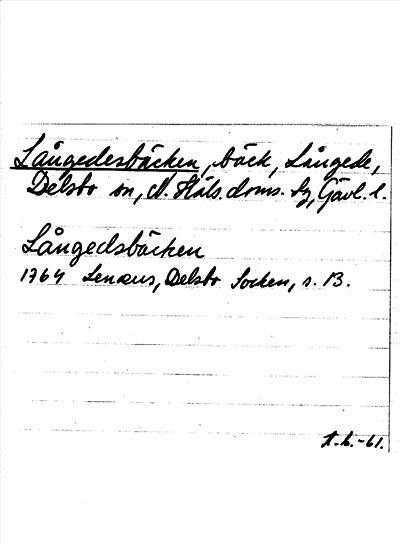 Långedesbäcken, bäck, Långede,
Delsbo sn, N. Häls. doms. tg, Gävl. l.
Långedsbäcken
1764 Lenæus, Delsbo Socken, s. 13.
-61.